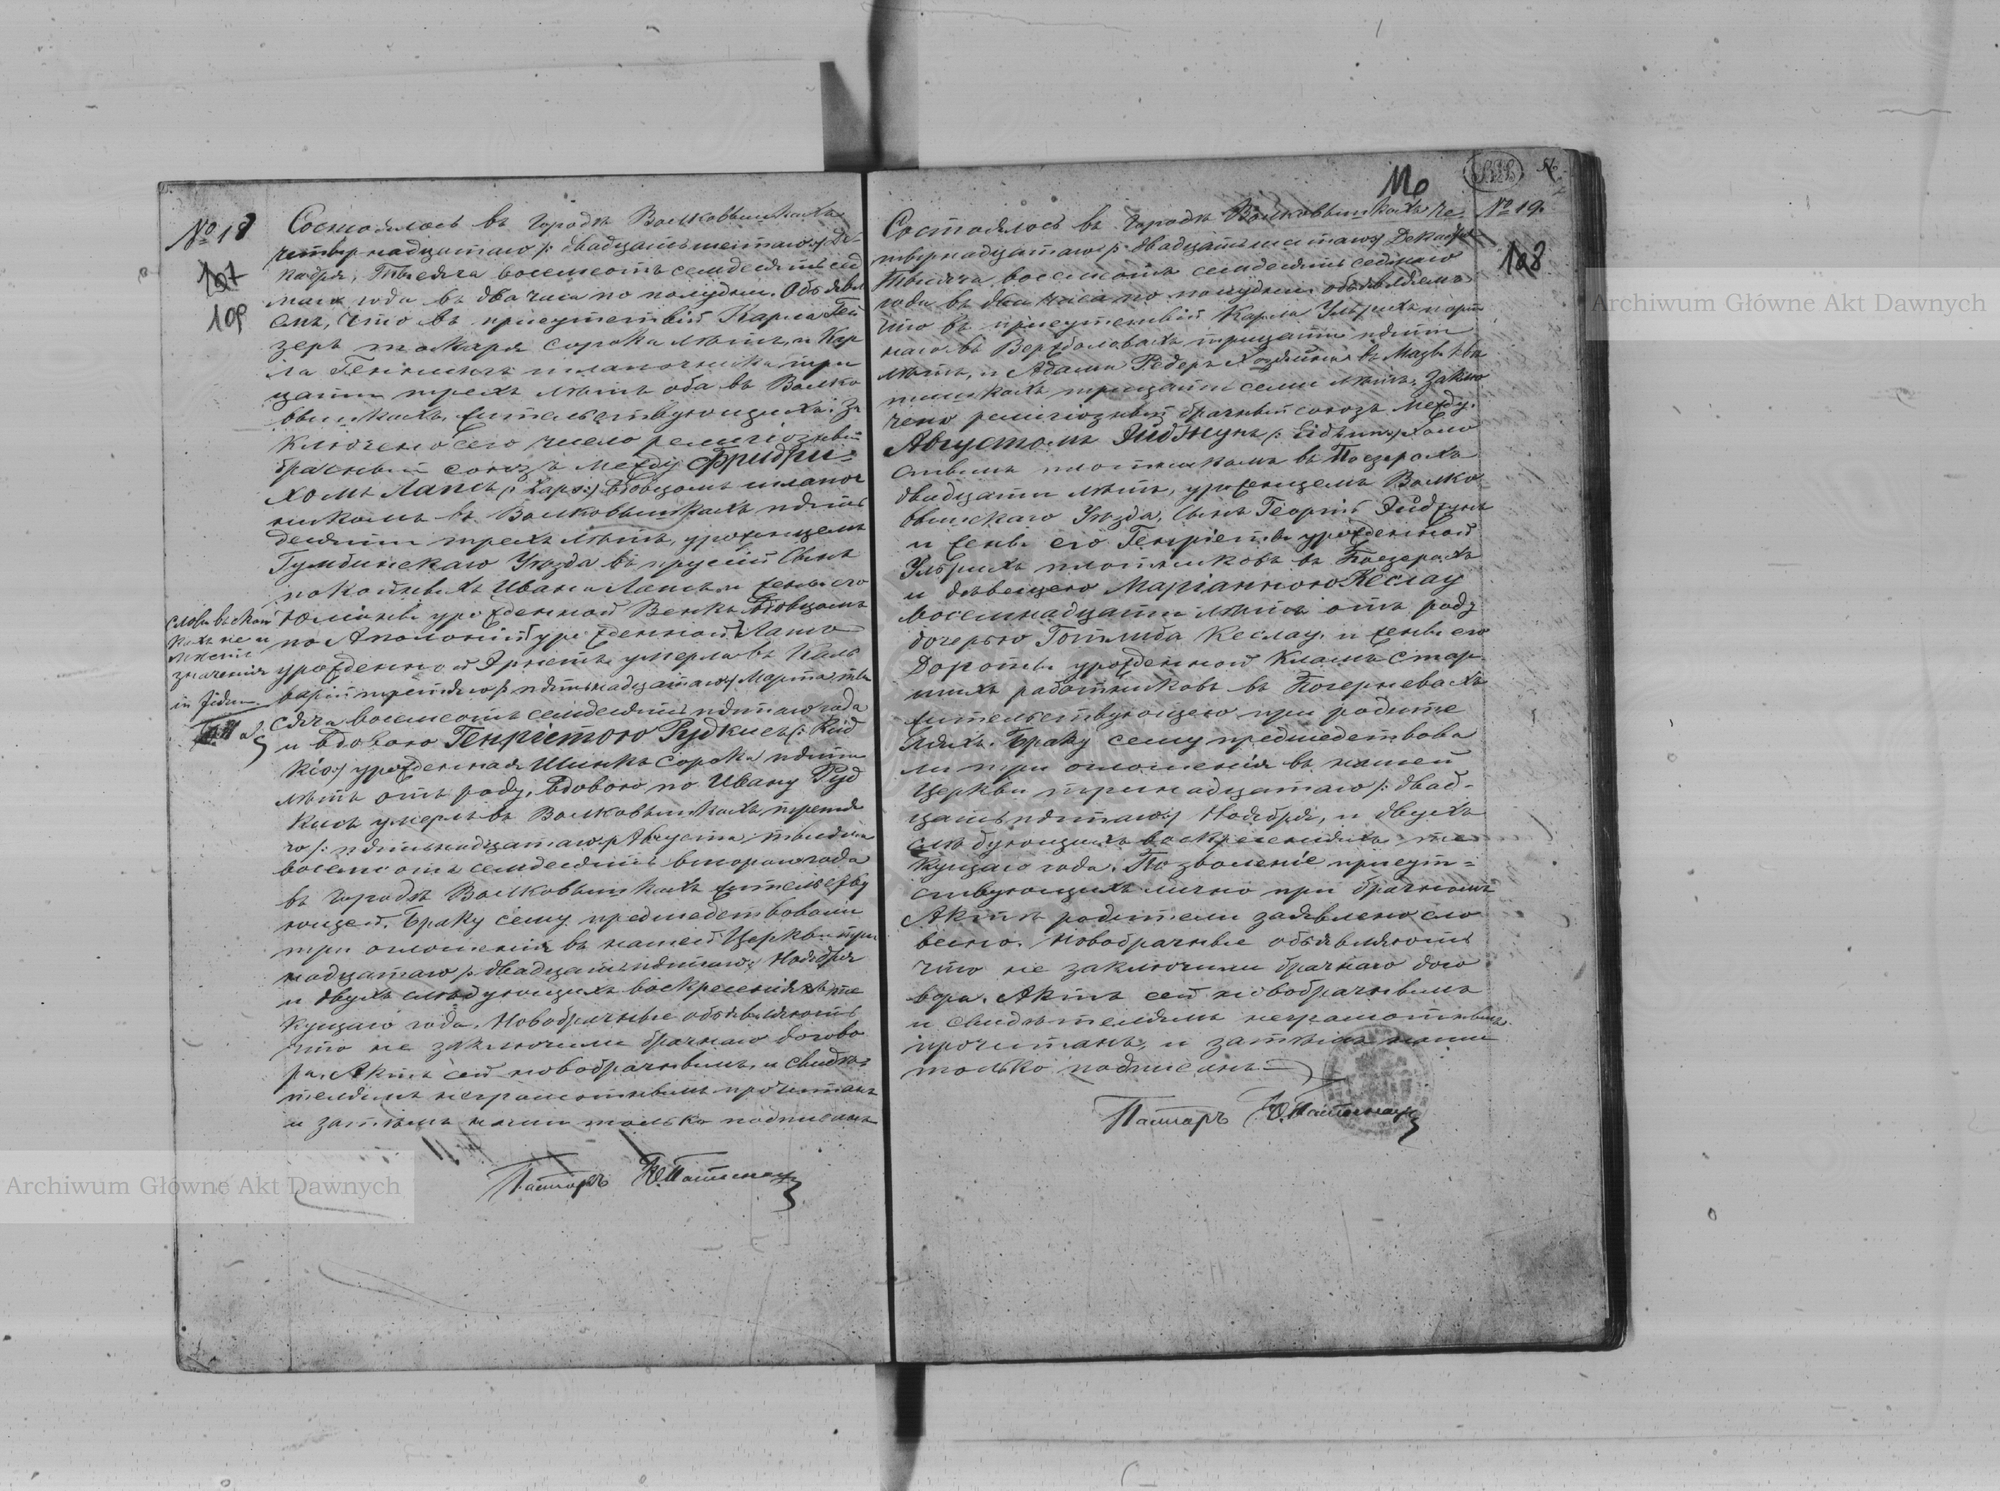 № 18
107
109
Состоялось въ городѣ Волковышкахъ
четырнадцатаго /: двадцать шестаго :/ Де-
кабря, тысяча восемьсотъ семдесятъ сед
маго года въ два часа по полудни. Объявля
емъ, что въ присутствіи Карла Гей
зеръ токаря сорока лѣтъ, и Кар
ла Геннигъ шапочника три
цати трехъ лѣтъ оба въ Волко
вышкахъ жительствующихъ; За
ключено сего числа религіозный
брачный союзъ между Фридри-
хомъ Лапсъ /: Laps :/ вдовцомъ шапоч
никомъ въ Волковышкахъ пять
десяти трехъ лѣтъ, уроженцемъ
Гумбинскаго Уѣзда въ Прусіи сынъ
покойныхъ Ивана Лапсъ и жены его
урожденной Венкъ вдовцомъ
по Аполоніи урожденной Лапсъ
урожденной Эрнстъ умерла въ Каль
варіи третяго /: пятьнадцатаго :/ Марта ты
сяча восемьсотъ семдесятъ пятаго года
и вдовою Генріетою Рудкисъ /: Rud
kis :/ урожденная Шинкъ сорока пяти
лѣтъ отъ роду, вдовою по Ивану Руд
кисъ умеръ въ Волковышкахъ третя
го /: пятьнадцатаго :/ Августа тысяча
восемьсотъ семдесятъ втораго года
въ городѣ Волковышкахъ жительству
ющей. Браку сему предшедствовали
три оглошенія въ нашей Церкви три
надцатаго /: двадцать пятаго :/ Ноября
и двухъ слѣдующихъ воскресеніяхъ те
кущаго года. Новобрачные объявляютъ
что не заключили брачнаго догово
ра. Актъ сей новобрачнымъ и свидѣ-
телямъ неграмотнымъ прочитанъ
и затѣмъ нами только подписанъ
Пасторъ
значенія
116
№ 19.
108
Состоялось въ городѣ Волковышкахъ че-
твернадцатаго /: двадцать шестаго :/ Декабря
тысяча восемьсотъ семдесятъ седмаго
года въ два часа по полудни. объявляемъ
что въ присутствіи Карла Ульрихъ порт
наго въ Вержболовахъ трицати пяти
лѣтъ, и Адама Редеръ хозяина въ
трицати семи лѣтъ. Заклю
чено религіозный брачный союзъ между
Августомъ Эйджунъ /: холо
стымъ плотникомъ въ Поезерахъ
двадцати лѣтъ, уроженцемъ Волко
вышскаго Уѣзда, сынъ Георгъ Эйджунъ
и жены его Генріеты урожденной
Ульрихъ плотниковъ въ Поезерахъ
и дѣвицею Маріанною Кеслау
восемнадцати лѣтъ отъ роду
дочерью Готлиба Кеслау и жены его
Доротѣи урожденной
работниковъ въ
жительствующею при родите
ляхъ. Браку сему предшедствова
ли три оглошенія въ нашей
Церкви тринадцатаго /: двад-
цать пятаго :/ Ноября, и двухъ
слѣдующихъ воскресеніяхъ те-
кущаго года. Позволеніе присут-
ствующихъ лично при брачномъ
Актѣ родители заявлено сло
весно. Новобрачные объявляютъ
что не заключили брачнаго дого
вора. Актъ сей новобрачнымъ
и свидѣтелямъ неграмотнымъ
прочитанъ, и затѣмъ нами
только подписанъ
Пасторъ
Archiwum Główne Akt Dawnych
Archiwum Główne Akt Dawnych